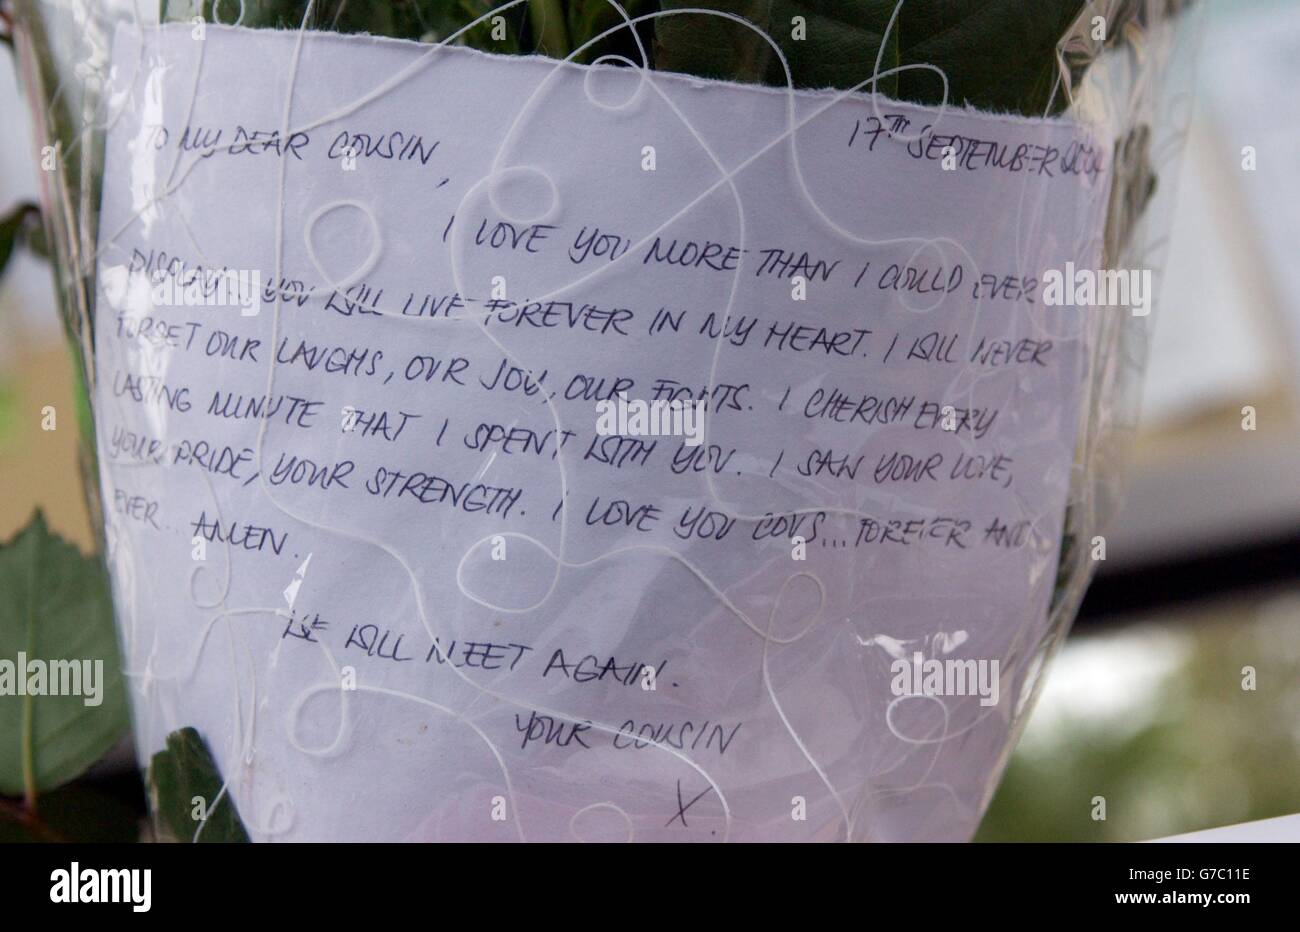 TO MY DEAR COUSIN,
17TH SEPTEMBER 2004
I LOVE YOU MORE THAN I COULD EVER
DISPLAY... YOU WILL LIVE FOREVER IN MY HEART. I WILL NEVER
FORGET OUR LAUGHS, OUR JOY, OUR FIGHTS. I CHERISH EVERY
LASTING MINUTE THAT I SPENT WITH YOU. I SAW YOUR LOVE,
YOUR PRIDE, YOUR STRENGTH. I LOVE YOU COUS... FOREVER AND
EVER.. AMEN.
WE WILL MEET AGAIN.
YOUR COUSIN
X.
alamy
alamy
alamy
alamy
alamy
alamy
alamy
Image ID: G7C11E
www.alamy.com